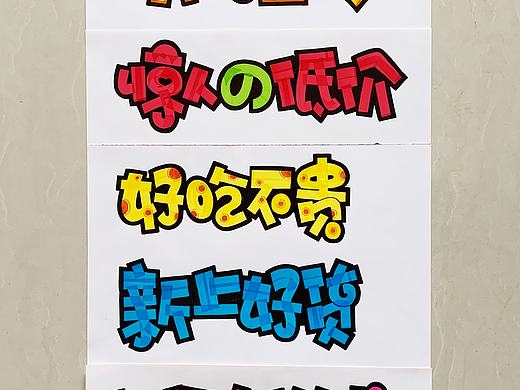 惊人の低价
好吃不贵
新上好货